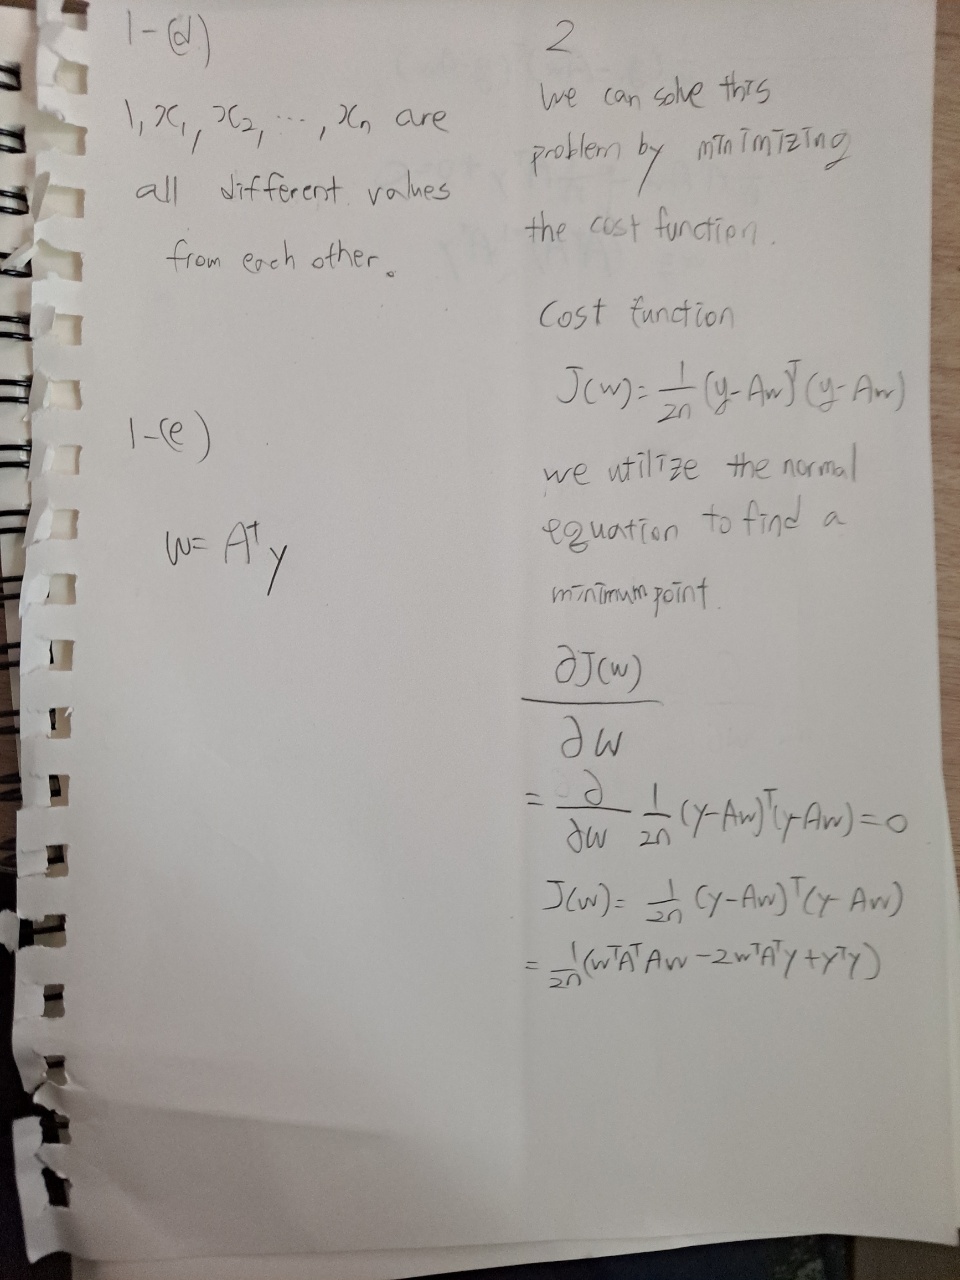 1-(d)
1, x₁, x₂, ⋯, xₙ are
all different values
from each other.
1-(e)
w= A†y
2
We can solve this
problem by minimizing
the cost function.
Cost function
J(w)= 1/2n (y-Aw)ᵀ(y-Aw)
we utilize the normal
equation to find a
minimum point.
∂J(w)
∂w
= ∂/∂w 1/2n (y-Aw)ᵀ(y-Aw)=0
J(w)= 1/2n (y-Aw)ᵀ(y-Aw)
= 1/2n (wᵀAᵀAw-2wᵀAᵀy+yᵀy)